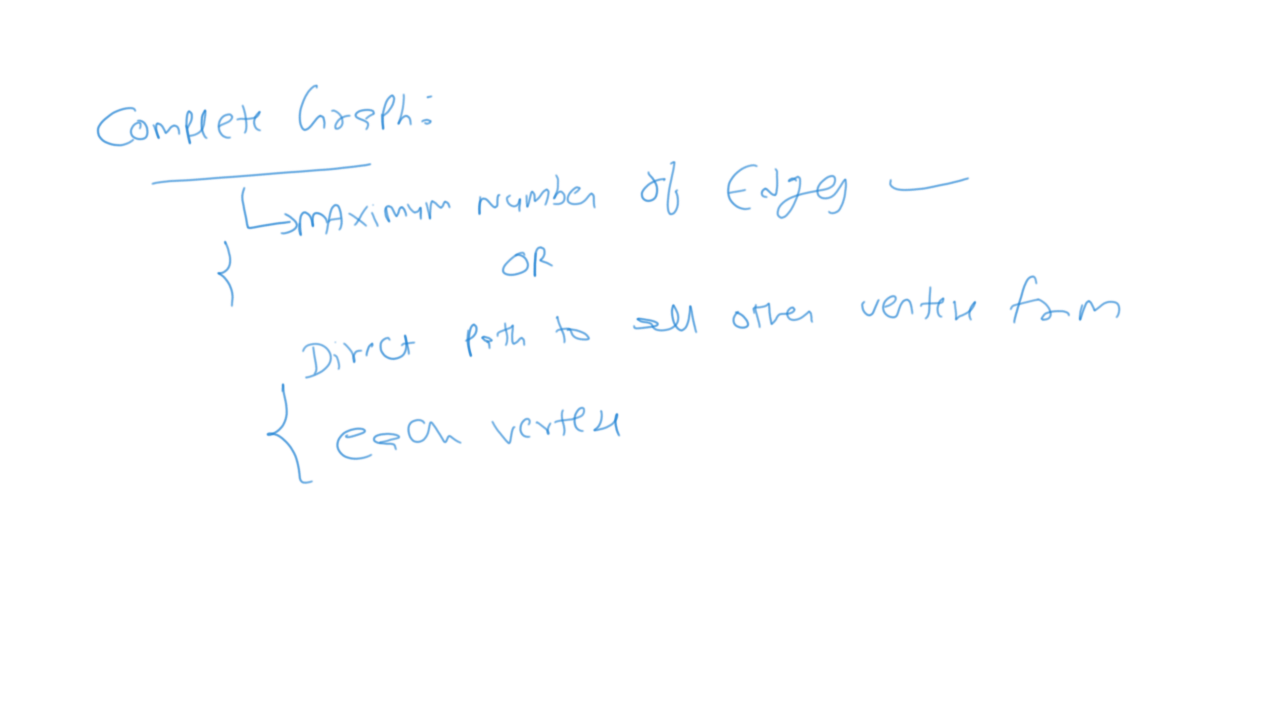 Complete Graph:
maximum number of Edges
OR
Direct path to all other vertex from
each vertex